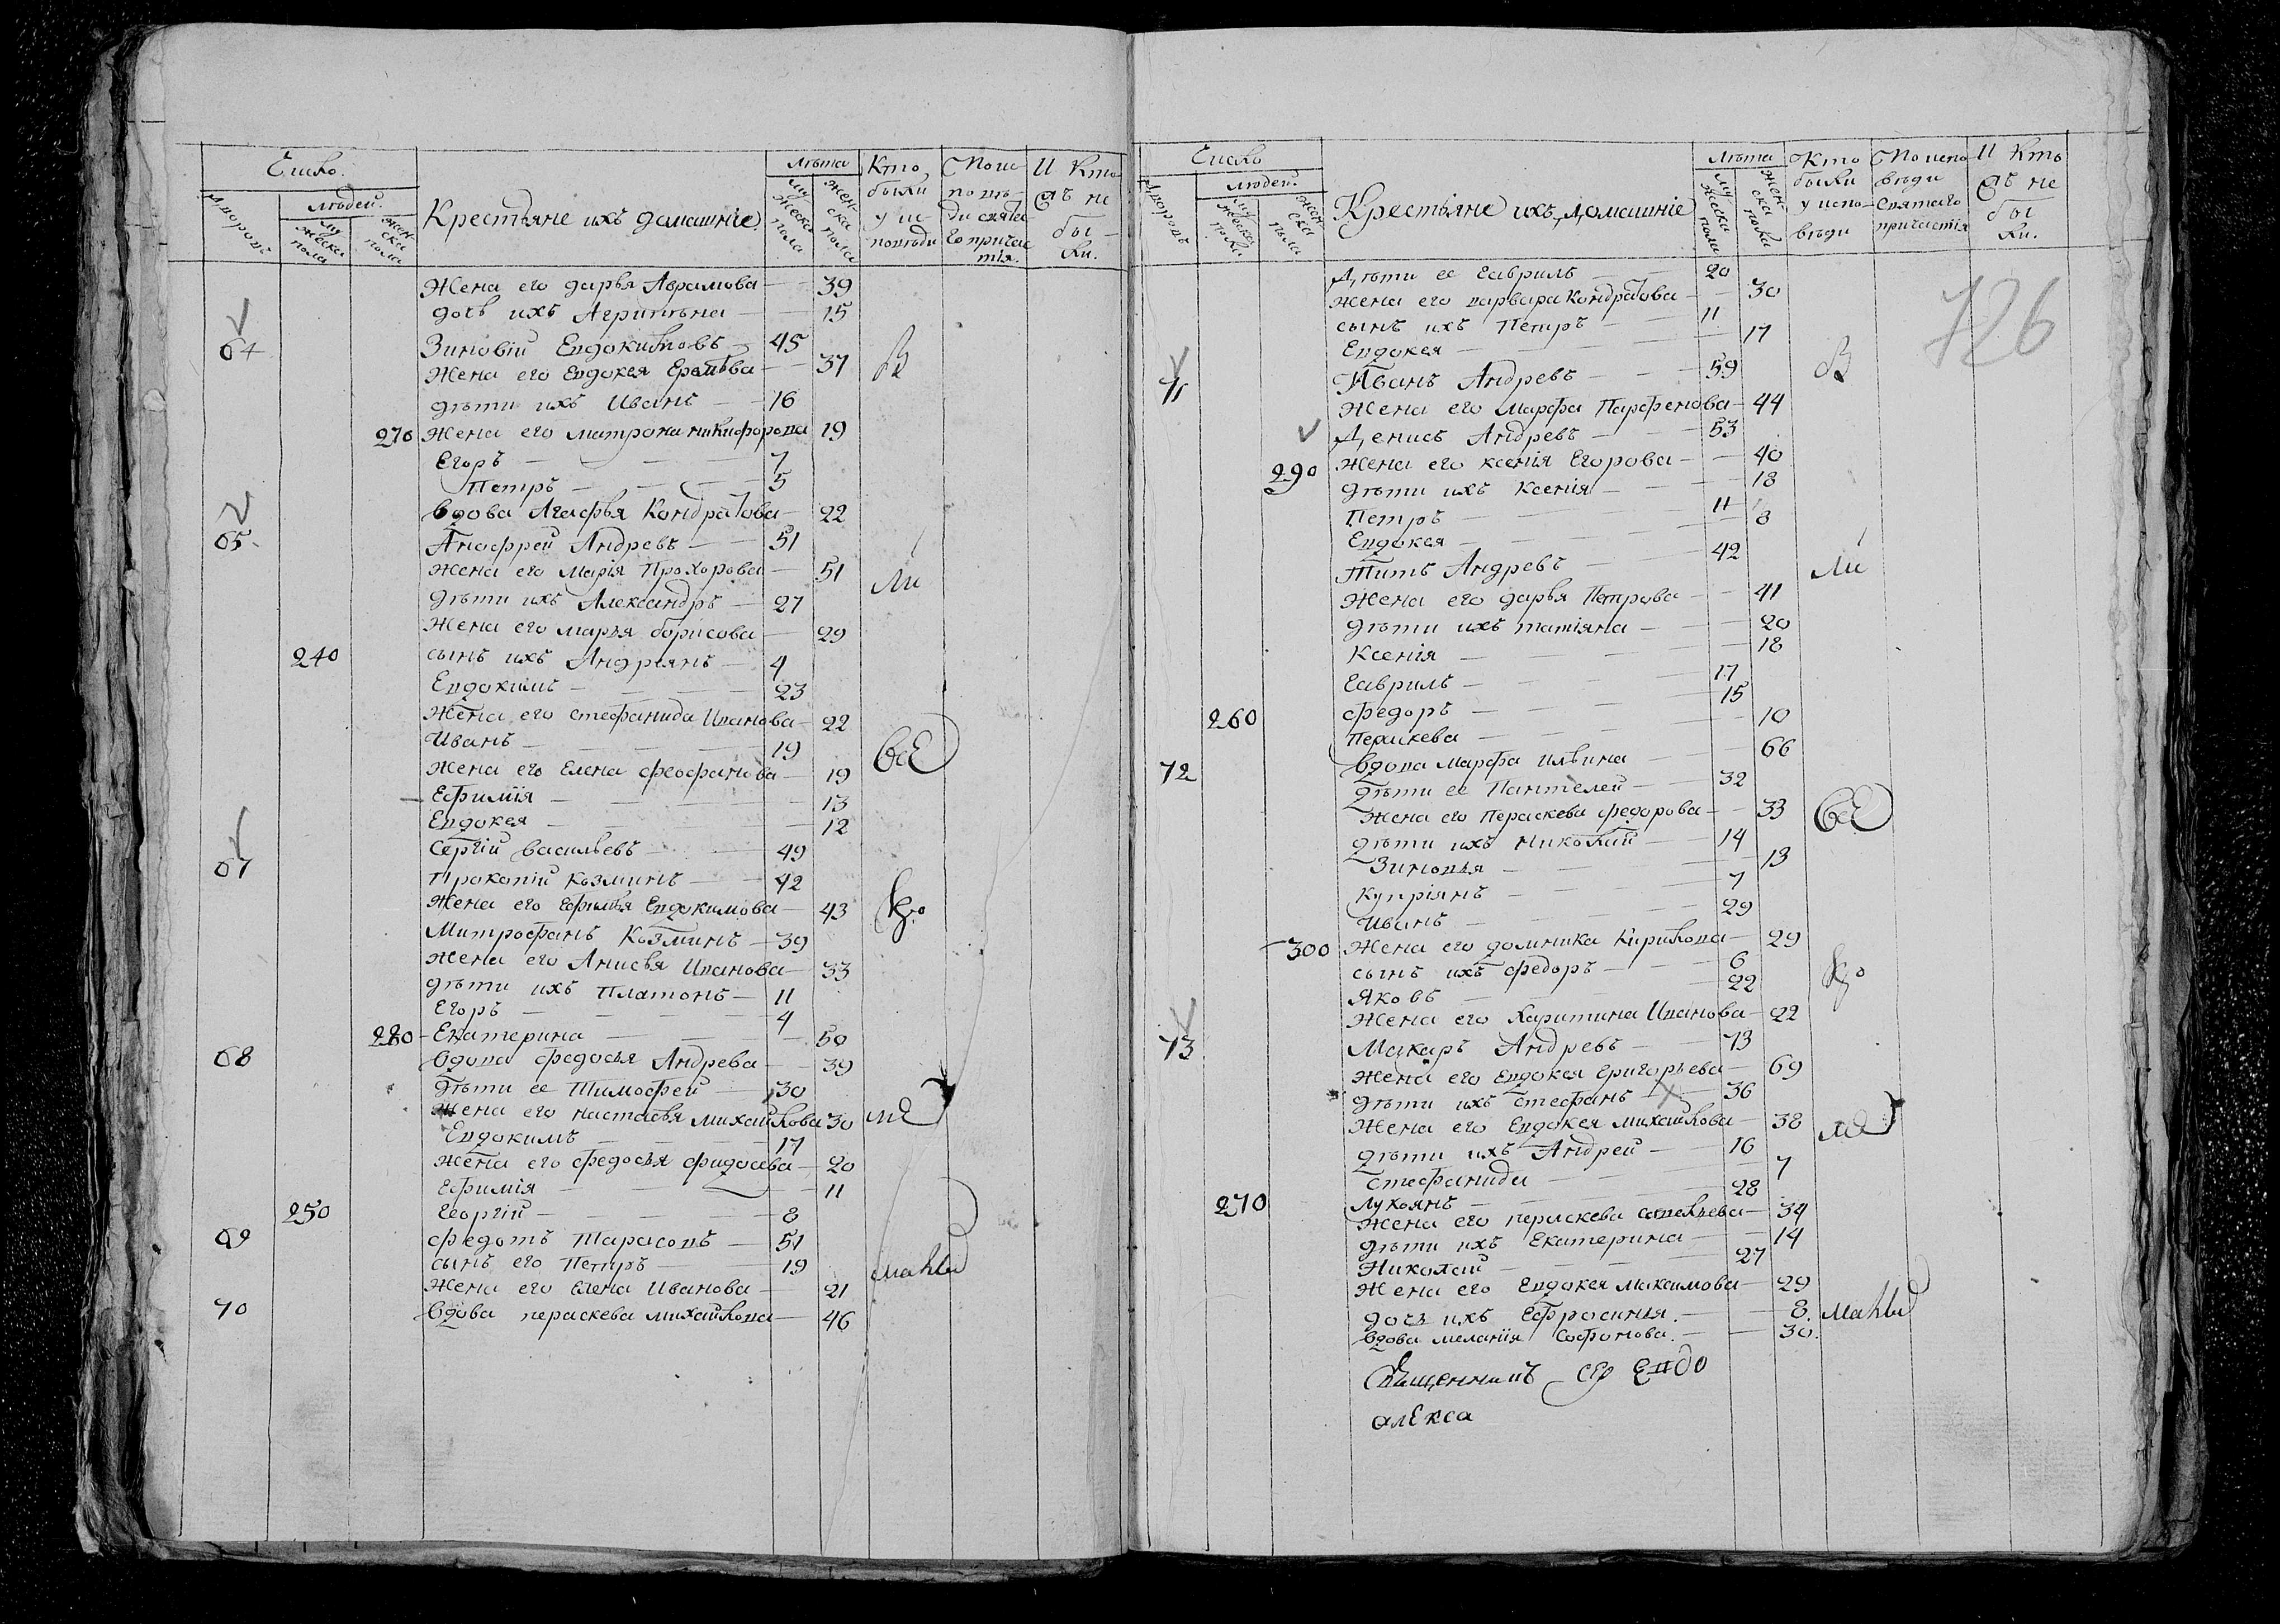 Число.
Дворовъ
людей.
мужеска пола
женска пола
Крестьяне ихъ домашніе
Лѣта
мужеска пола
женска пола
Кто были у исповѣди
По исповѣди святаго причастія.
И кто съ не были.
Жена его дарья Аврамова — 39
дочь ихъ Агрипѣна — 15
64 Зиновій Евдокимовъ — 45
Жена его Евдокея — 37 В
дѣти ихъ Иванъ — 16
270 Жена его матрона никифорова 19
Егоръ — 7
Петръ — 5
вдова Агафья Кондратова — 22
65 Анофрей Андревъ — 51
Жена его Марія Прохорова — 51 Ли
дѣти ихъ Александръ — 27
Жена его марья борисова — 29
240 сынъ ихъ Андреянъ — 4
Евдокимъ — 23
Жена его стефанида Иванова — 22
Иванъ — 19 всѣ
Жена его Елена феофанова — 19
Ефимія — 13
Евдокея — 12
67 Сергій васильевъ — 49
Прокопій Козминъ — 42
Жена его Ефимья Евдокимова — 43
Митрофанъ Козминъ — 39
Жена его Анисья Иванова — 33
дѣти ихъ Платонъ — 11
Егоръ — 4
280 Екатерина — 50
68 вдова федосья Андрева — 39
дѣти ее Тимофей — 30
Жена его настасья михайлова 30
Евдокимъ — 17
Жена его федосья — 20
Ефимія — 11
250 Георгій — 8
69 федотъ Тарасовъ — 51
сынъ его Петръ — 19
Жена его Елена Иванова — 21
70 вдова пераскева михайлова — 46
Число
Дворовъ
людей.
мужеска пола
женска пола
Крестьяне ихъ домашніе
Лѣта
мужеска пола
женска пола
Кто были у исповѣди
По исповѣди святаго причастія
И кто съ не были.
126
Дѣти ее Гаврилъ — 20
жена его варвара Кондратова — 30
сынъ ихъ Петръ — 11
Евдокея — 17
71 Иванъ Андревъ — 59 В
Жена его Марфа Парфенова — 44
Денисъ Андревъ — 53
290 Жена его ксенія Егорова — 40
дѣти ихъ Ксенія — 18
Петръ — 11
Евдокея — 8
Титъ Андревъ — 42 Ли
Жена его дарья Петрова — 41
дѣти ихъ татіяна — 20
Ксенія — 18
Гаврилъ — 17
260 федоръ — 15
Пераскева — 10
72 вдова Марфа ильина — 66
дѣти ее Пантелей — 32
Жена его Пераскева федорова — 33 всѣ
дѣти ихъ Николай — 14
Зиновья — 13
Купріянъ — 7
Иванъ — 29
300 Жена его домника Кирилова — 29
сынъ ихъ федоръ — 6
Яковъ — 22
Жена его Харитина Иванова — 22
73 Макаръ Андревъ — 73
Жена его Евдокея григорьева — 69
дѣти ихъ стефанъ — 36
Жена его Евдокея михайлова — 38
дѣти ихъ Андрей — 16
Стефанида — 7
270 Лукоянъ — 28
Жена его пераскева — 34
дѣти ихъ Екатерина — 14
Николай — 27
Жена его Евдокея максимова — 29
дочь ихъ Ефросинья. — 8.
вдова меланія Софонова. — 30.
Священникъ
алекса